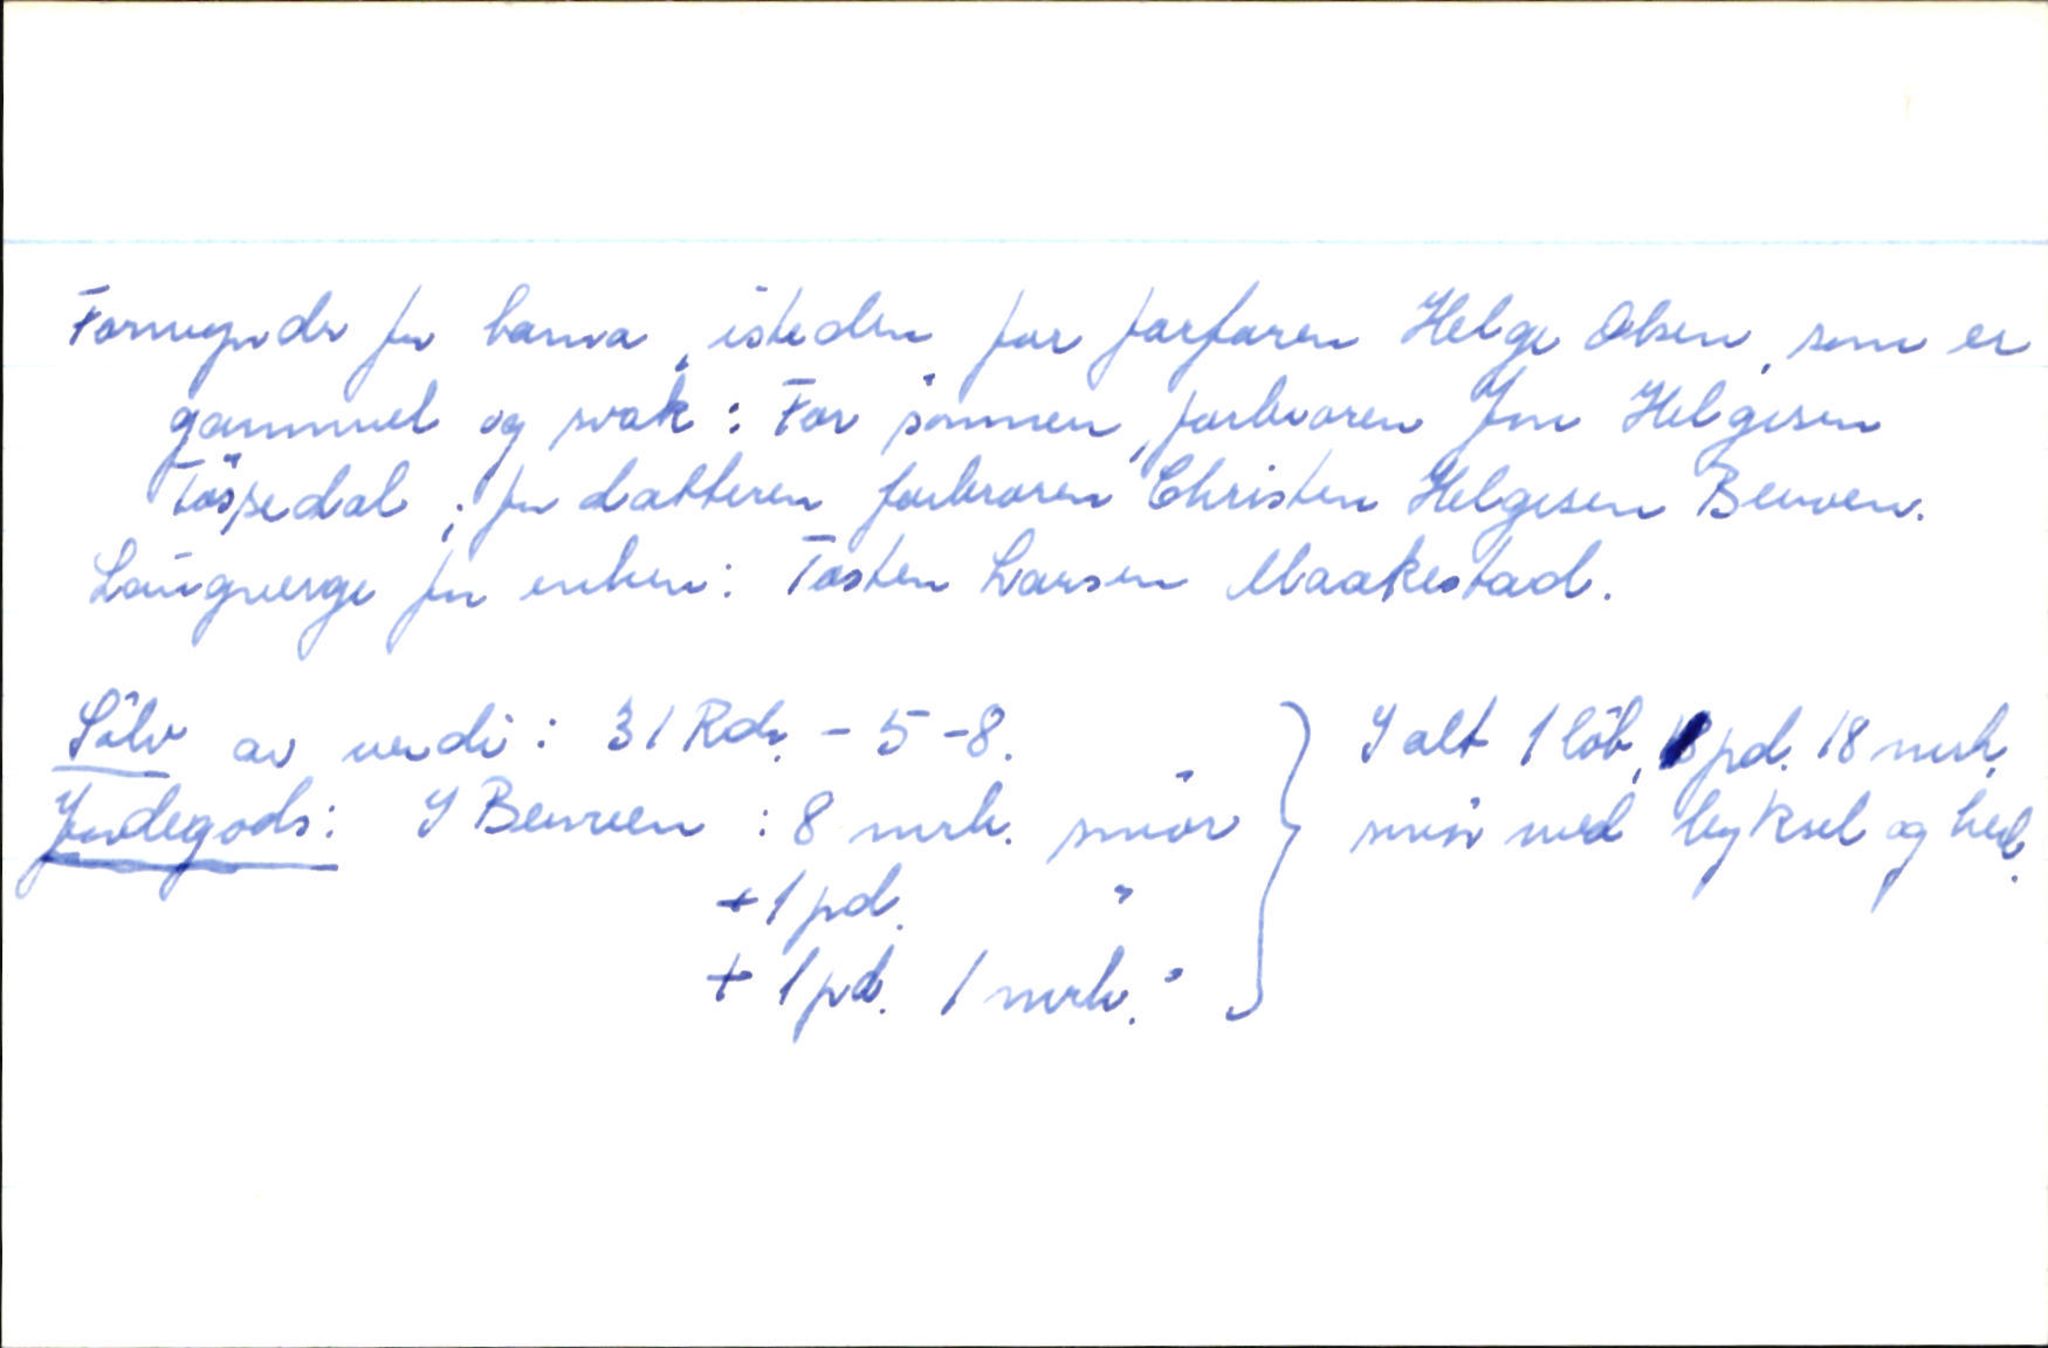 Formynder for barna, isteden for farfaren Helge Olsen, som er
gammel og svak: For sönnen, farbroren Jon Helgesen
Tössedal; for datteren farbroren Christen Helgesen Berven.
Laugverge for enken: Tosten Larsen Maakestad.
Sölv av verdi: 31 Rdr. - 5 - 8.
Jordegods: I Berven: 8 mrk. smör } I alt 1 löb, pd. 18 mrk.
+ 1 pd. " smör med bygsel og herl.
+ 1 pd. 1 mrk. "